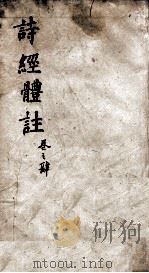 詩經體註
卷之肆
mtoou.info